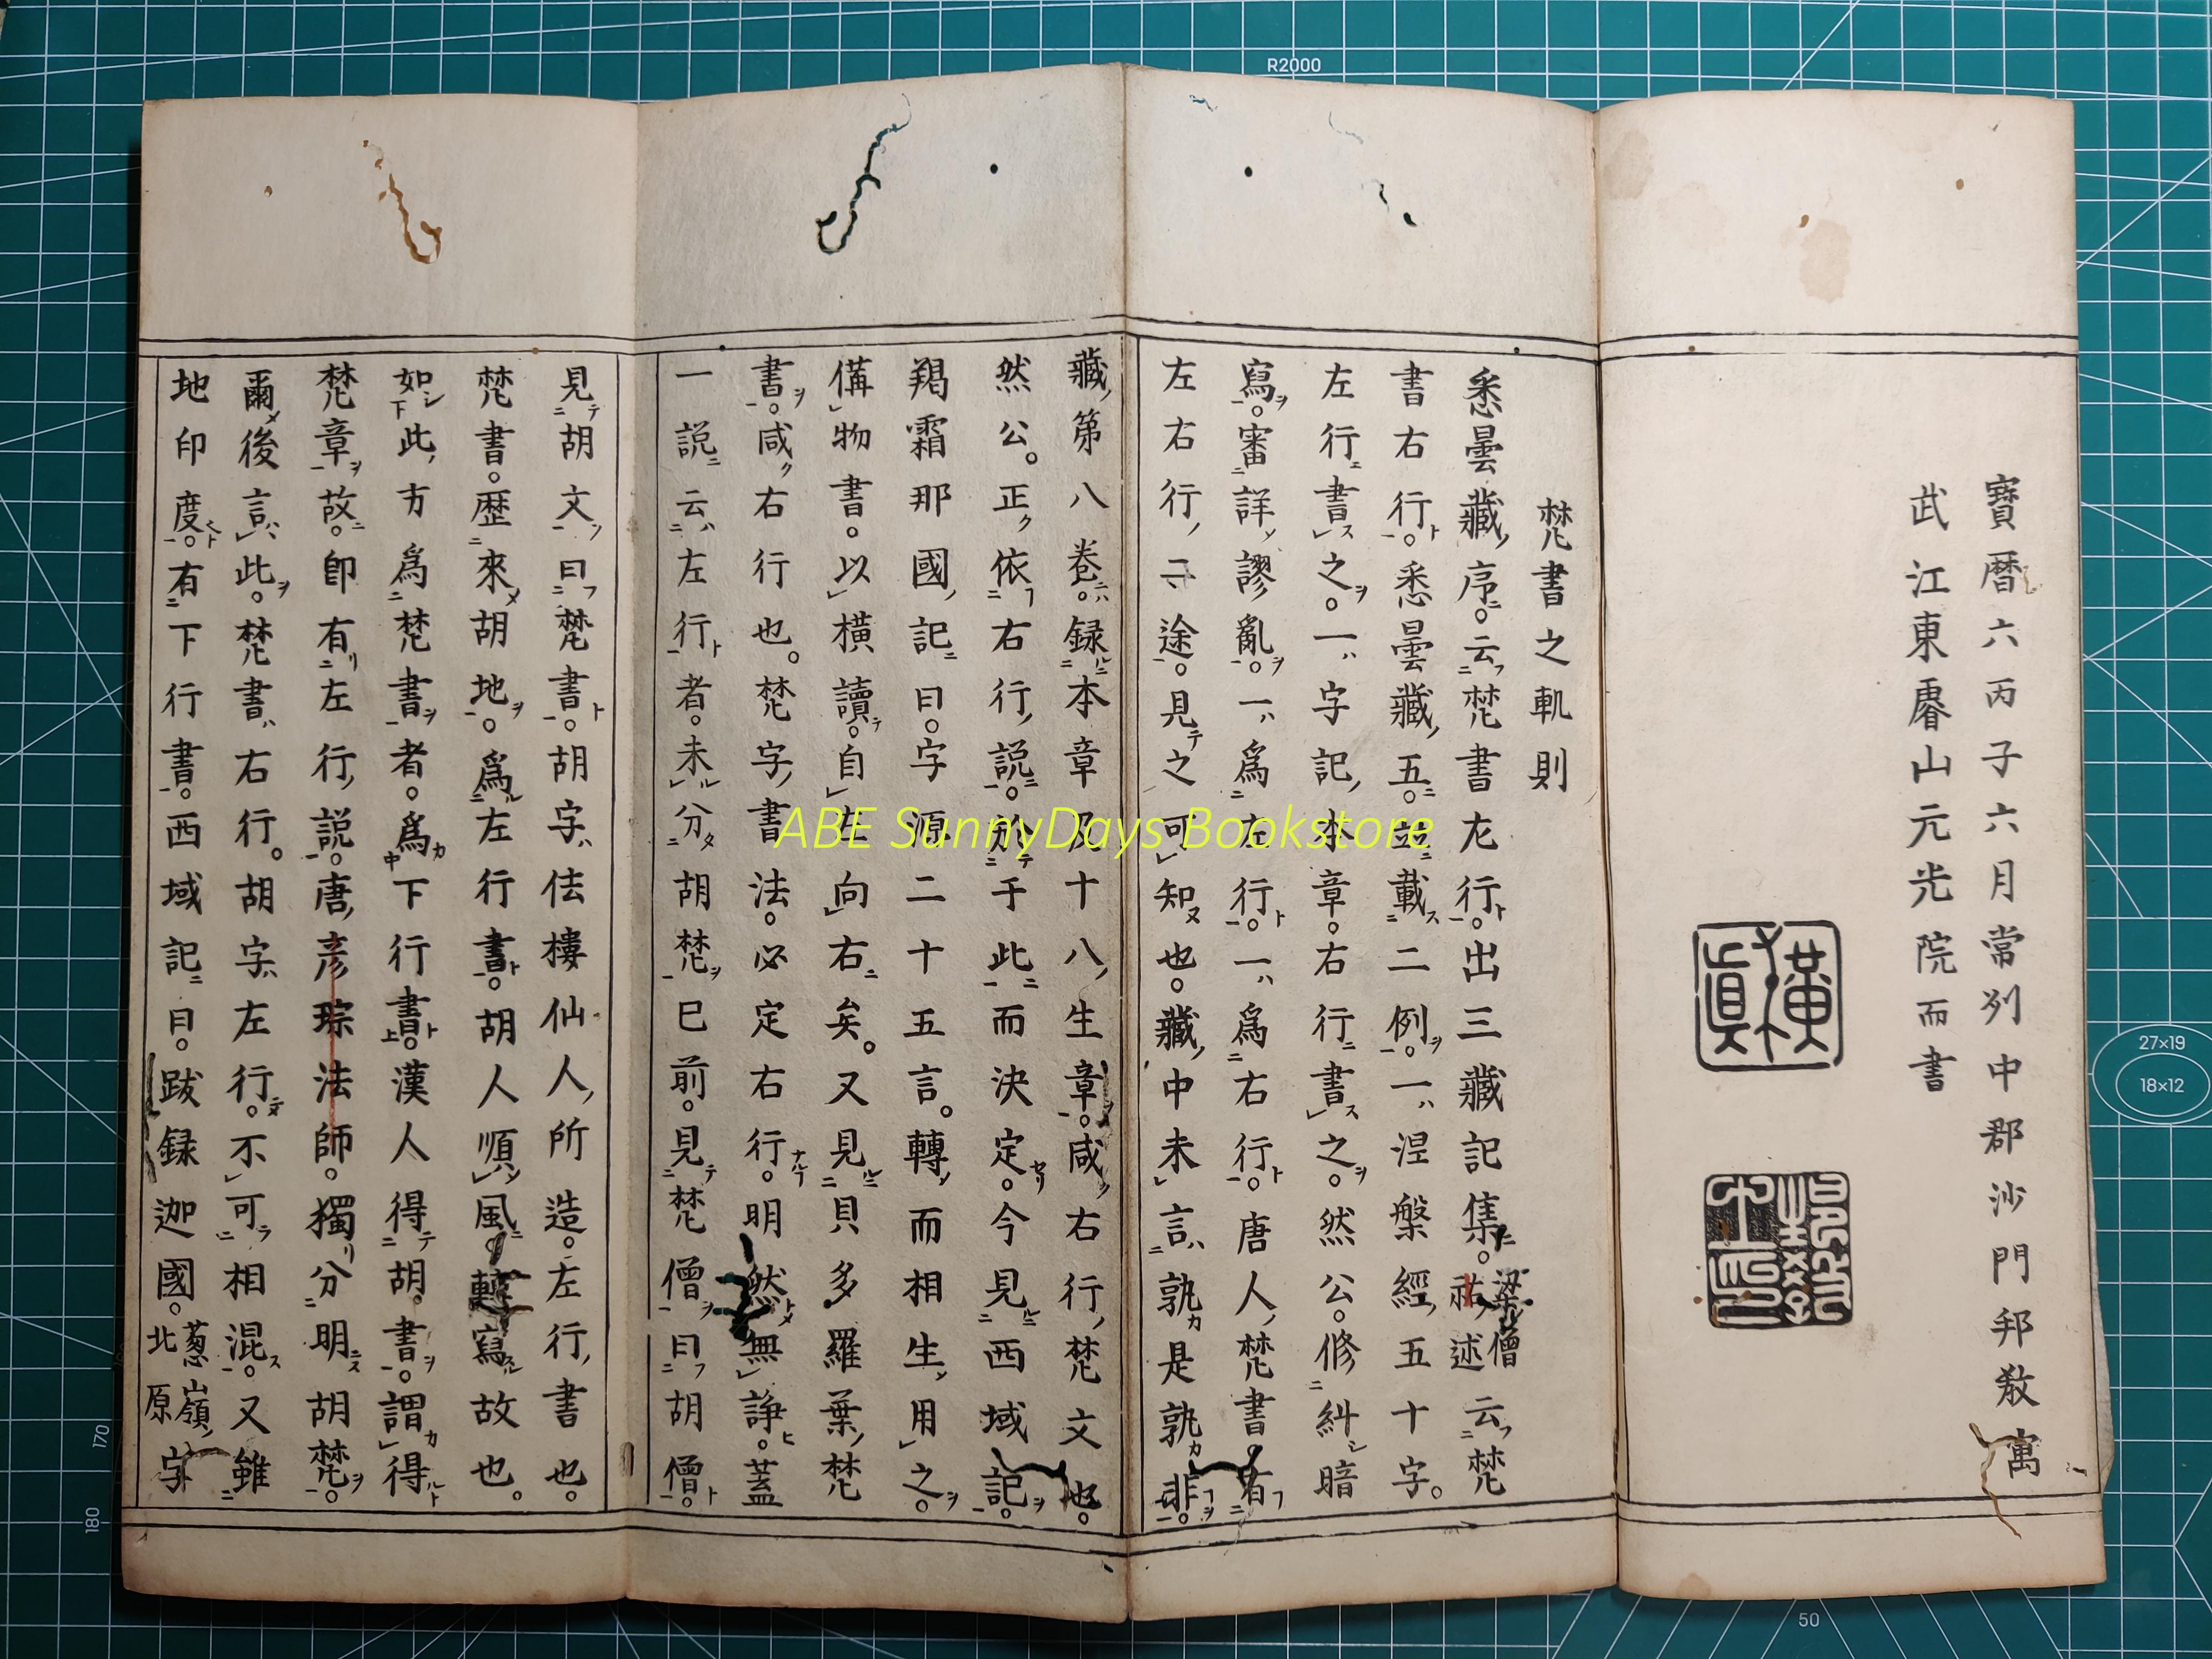 寶曆六丙子六月常列中郡沙門邦教寓
武江東睿山元光院而書
梵書之軌則
悉曇藏序云梵書左行出三藏記集梁僧祐述云梵
書右行悉曇藏五並載二例一涅槃經五十字
左行書之一字記本章右行書之然公修糾暗
寫審詳謬亂一爲左行一爲右行唐人梵書有
左右行二途見之可知也藏中未言孰是孰非
藏第八卷録本章及十八生章咸右行梵文也
然公正依右行説於于此而決定今見西域記
羯霜那國記曰字源二十五言轉而相生用之
備物書以橫讀自左向右矣又見貝多羅葉梵
書咸右行也梵字書法必定右行明然無諍蓋
一説云左行者未分胡梵已前見梵僧曰胡僧
見胡文曰梵書胡字佉樓仙人所造左行書也
梵書歴來胡地爲左行書胡人順風轉寫故也
如此方爲梵書者爲下行書漢人得胡書謂得
梵章故即有左行説唐彦琮法師獨分明胡梵
爾後言此梵書右行胡字左行不可相混又雖
地印度有下行書西域記曰跋録迦國葱嶺北原字
ABE SunnyDays Bookstore
R2000
27×19
18×12
170
180
50